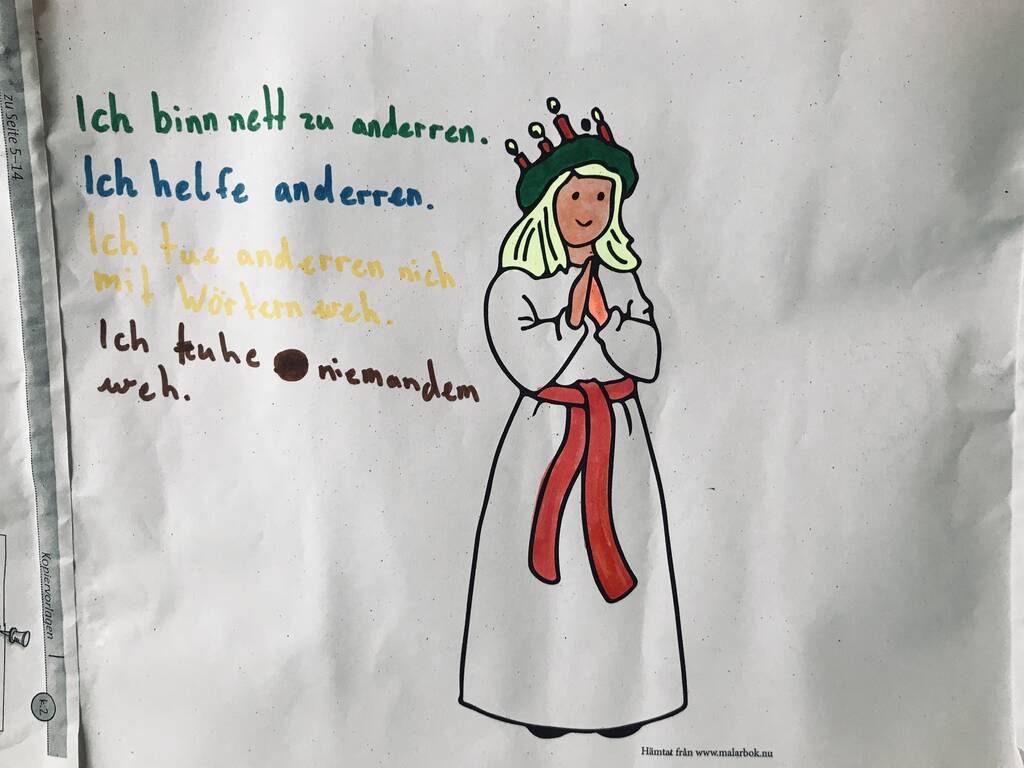 Ich binn nett zu anderren.
Ich helfe anderren.
Ich tue anderren nich
mit Wörtern weh.
Ich tuhe niemandem
weh.
Hämtat från www.malarbok.nu
zu Seite 5-14
Kopiervorlagen
k2